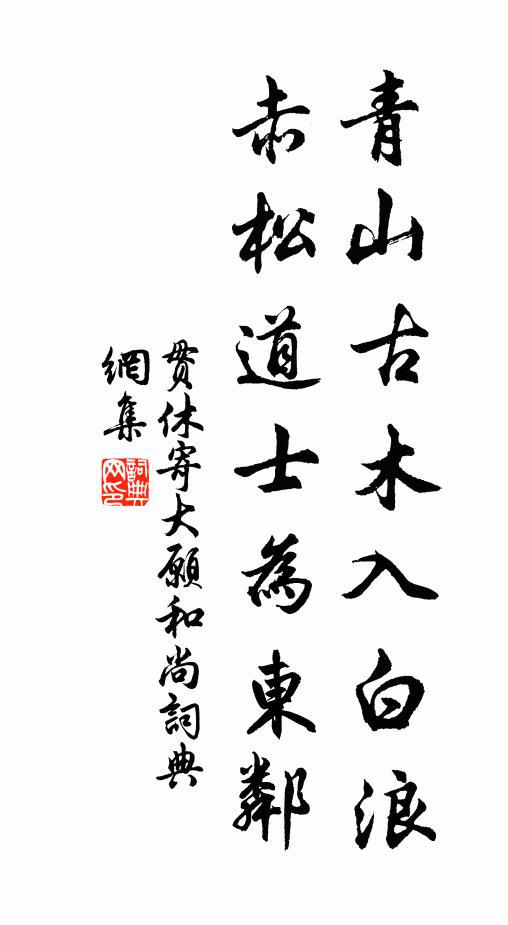 青山古木入白浪
赤松道士為東鄰
貫休寄大願和尚詞典
網集
詞典
网印